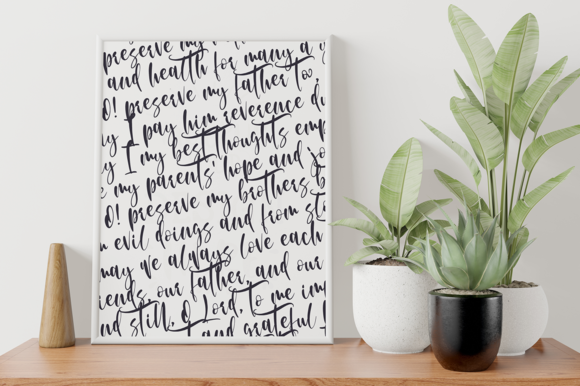 preserve my
and health for many a
O! preserve my father too.
I pay him reverence du
I my best thoughts emp
my parents' hope and jo
O! preserve my brothers b
m evil doings and from st
may we always love each
ends, our father, and our
nd still, O Lord, to me im
and grateful